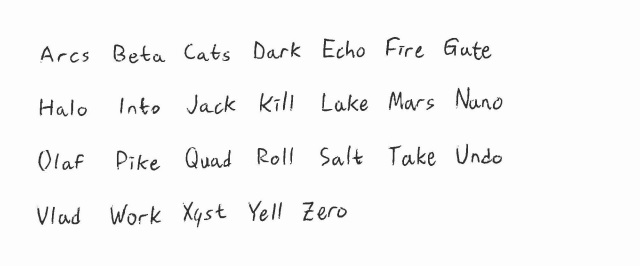 Arcs Beta Cats Dark Echo Fire Gate
Halo Into Jack Kill Lake Mars Nano
Olaf Pike Quad Roll Salt Take Undo
Vlad Work Xyst Yell Zero